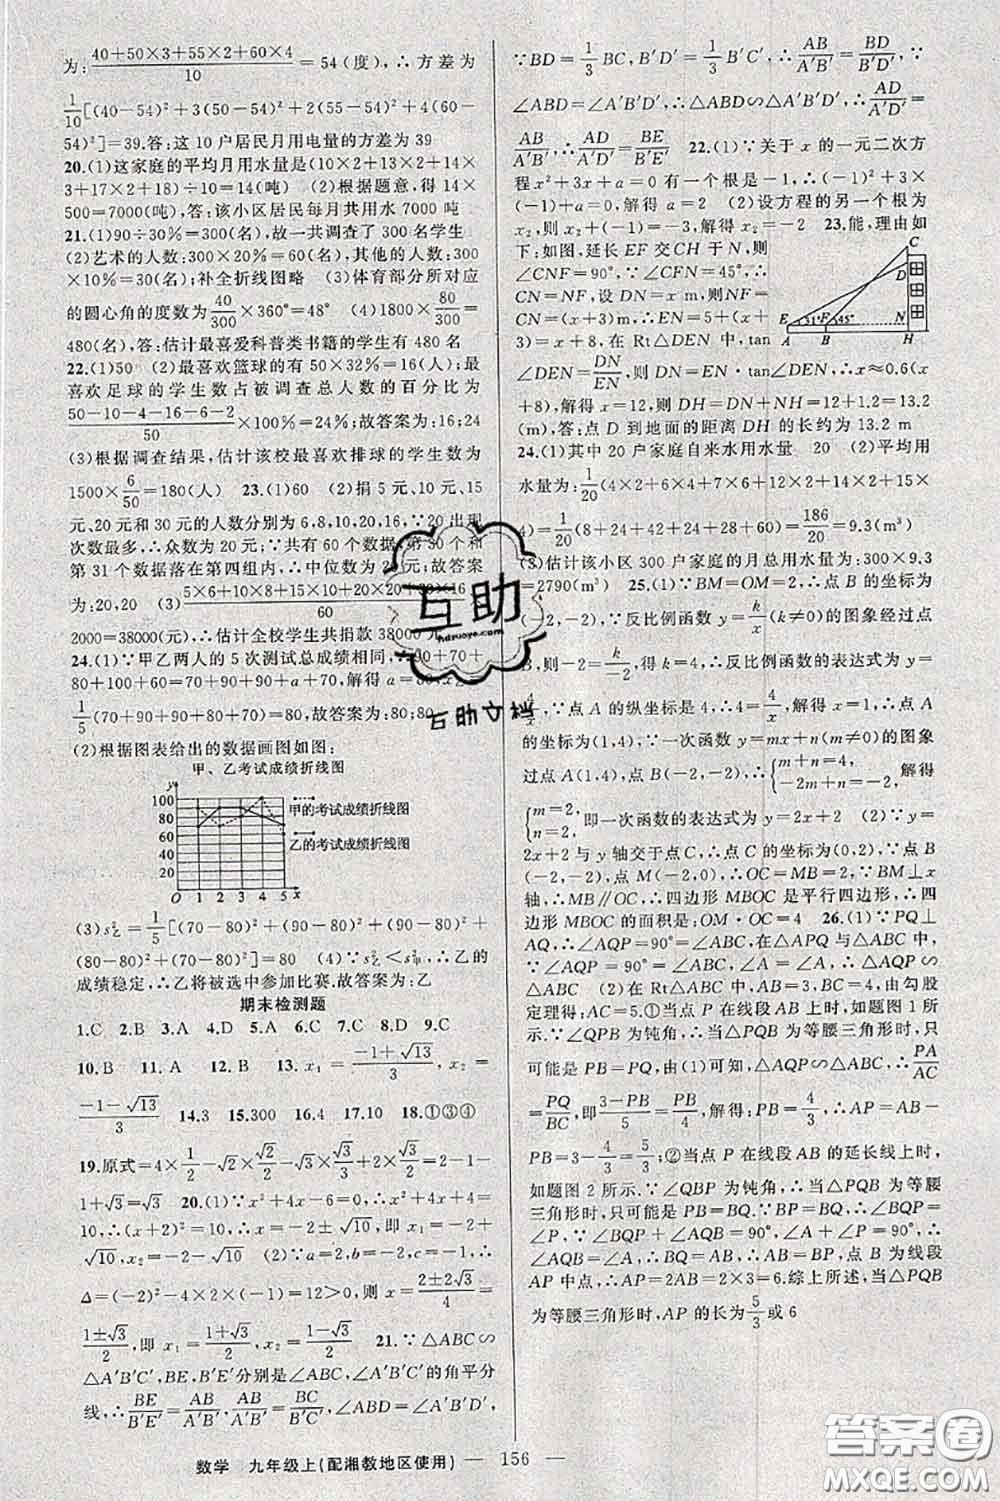 为:(40+50×3+55×2+60×4)/10=54(度),∴方差为
1/10[(40-54)²+3(50-54)²+2(55-54)²+4(60-
54)²]=39.答:这10户居民月用电量的方差为39
20.(1)这家庭的平均月用水量是(10×2+13×2+14×
3+17×2+18)÷10=14(吨) (2)根据题意,得14
×500=7000(吨),答:该小区居民每月共用水7000吨
21.(1)90÷30%=300(名),故一共调查了300名学生
(2)艺术的人数:300×20%=60(名),其他的人数:
300×10%=30(名);补全折线图略 (3)体育部分所对应
的圆心角的度数为40/300×360°=48° (4)1800×80/300=
480(名),答:估计最喜爱科普类书籍的学生有480名
22.(1)50 (2)最喜欢篮球的有50×32%=16(人),最
喜欢足球的学生数占被调查总人数的百分比为
(50-10-4-16-6-2)/50×100%=24%;故答案为:16;24
(3)根据调查结果,估计该校最喜欢排球的学生数为
1500×6/50=180(人) 23.(1)60 (2)捐5元、10
元、15元、20元和30元的人数分别为6,8,10,20,16,∵20出现
次数最多,∴众数为20元;∵共有60个数据,第30个和
第31个数据落在第四组内,∴中位数为20元;故答案
为:20,20 (3)(5×6+10×8+15×10+20×20+30×16)/60
2000=38000(元),∴估计全校学生共捐款38000元
24.(1)∵甲乙两人的5次测试总成绩相同,∴90+70+
80+100+60=70+90+90+a+70,解得a=80,
1/5(70+90+90+80+70)=80,故答案为:80;80
(2)根据图表给出的数据画图如图:
甲、乙考试成绩折线图
y
100
80
60
40
20
0 1 2 3 4 5 x
甲的考试成绩折线图
乙的考试成绩折线图
(3)s²乙=1/5[(70-80)²+(90-80)²+(90-80)²+
(80-80)²+(70-80)²]=80 (4)∵s²乙<s²甲,∴乙的
成绩稳定,∴乙将被选中参加比赛.故答案为:乙
期末检测题
1.C 2.B 3.A 4.D 5.C 6.B 7.C 8.D 9.C
10.B 11.A 12.B 13.x₁=(-1+√13)/3,x₂=
(-1-√13)/3 14.3 15.300 16.4 17.10 18.①③④
19.原式=4×1/2-√2×√2/2-√3×√3/3+2×√2/2=2-1-
1+√3=√3 20.(1)∵x²+4x-6=0,∴x²+4x+4=
10,∴(x+2)²=10,∴x=-2±√10,即x₁=-2+
√10,x₂=-2-√10 (2)∵a=2,b=-2,c=-1,∴
Δ=(-2)²-4×2×(-1)=12>0,则x=(2±2√3)/4=
(1±√3)/2,即x₁=(1+√3)/2,x₂=(1-√3)/2 21.∵△ABC∽
△A′B′C′,BE,B′E′分别是∠ABC,∠A′B′C′的角平分
线,∴BE/B′E′=AB/A′B′,AB/A′B′=BC/B′C′,∠ABD=∠A′B′D′.
∵BD=1/3BC,B′D′=1/3B′C′,∴AB/A′B′=BD/B′D′,∵
∠ABD=∠A′B′D′,∴△ABD∽△A′B′D′,∴AD/A′D′=
AB/A′B′,∴AD/A′D′=BE/B′E′ 22.(1)∵关于x的一元二次方
程x²+3x+a=0有一个根是-1,∴(-1)²+3×
(-1)+a=0,解得a=2 (2)设方程的另一个根为
x₂,则x₂+(-1)=-3,解得x₂=-2 23.能,理由如
下:如图,延长EF交CH于N,则
∠CNF=90°,∵∠CFN=45°,∴
CN=NF,设DN=x m,则NF=
CN=(x+3)m,∴EN=5+(x+
3)=x+8,在Rt△DEN中,tan
∠DEN=DN/EN,则DN=EN·tan∠DEN,∴x≈0.6(x
+8),解得x=12,则DH=DN+NH=12+1.2=13.2
(m),答:点D到地面的距离DH的长约为13.2 m
C
D
E 31° F 45° N
A B H
24.(1)其中20户家庭自来水用水量 20 (2)平均用
水量为:1/20(4×2+6×4+7×6+12×2+14×2+15×
4)=1/20(8+24+42+24+28+60)=186/20=9.3(m³)
(3)估计该小区300户家庭的月总用水量为:300×9.3
=2790(m³) 25.(1)∵BM=OM=2,∴点B的坐标为
(-2,-2),∵反比例函数y=k/x(k≠0)的图象经过点
B,则-2=k/-2,得k=4,∴反比例函数的表达式为y=
4/x,∵点A的纵坐标是4,∴4=4/x,得x=1,∴点A
的坐标为(1,4),∵一次函数y=mx+n(m≠0)的图象
过点A(1,4),点B(-2,-2),∴{m+n=4,-2m+n=-2,解得
{m=2,n=2,即一次函数的表达式为y=2x+2 (2)∵y=
2x+2与y轴交于点C,∴点C的坐标为(0,2),∵点B
(-2,-2),点M(-2,0),∴OC=MB=2,∵BM⊥x
轴,∴MB∥OC,∴四边形MBOC是平行四边形,∴四
边形MBOC的面积是:OM·OC=4 26.(1)∵PQ⊥
AQ,∴∠AQP=90°=∠ABC,在△APQ与△ABC中,
∵∠AQP=90°=∠ABC,∠A=∠A,∴△AQP∽
△ABC (2)在Rt△ABC中,AB=3,BC=4,由勾股
定理得:AC=5.①当点P在线段AB上时,如题图1所
示.∵∠QPB为钝角,∴当△PQB为等腰三角形时,只
可能是PB=PQ,由(1)可知,△AQP∽△ABC,∴PA/AC
=PQ/BC,即(3-PB)/5=PB/4,解得:PB=4/3,∴AP=AB-
PB=3-4/3=5/3;②当点P在线段AB的延长线上时,
如题图2所示.∵∠QBP为钝角,∴当△PQB为等腰
三角形时,只可能是PB=BQ.∵BP=BQ,∴∠BQP=
∠P.∵∠BQP+∠AQB=90°,∠A+∠P=90°,∴
∠AQB=∠A,∴BQ=AB,∴AB=BP,点B为线段
AP中点,∴AP=2AB=2×3=6,综上所述,当△PQB
为等腰三角形时,AP的长为5/3或6
互助
hdzuoye.com
互助文档
数学 九年级上(配湘教地区使用) — 156 —
答案圈
MXQE.COM